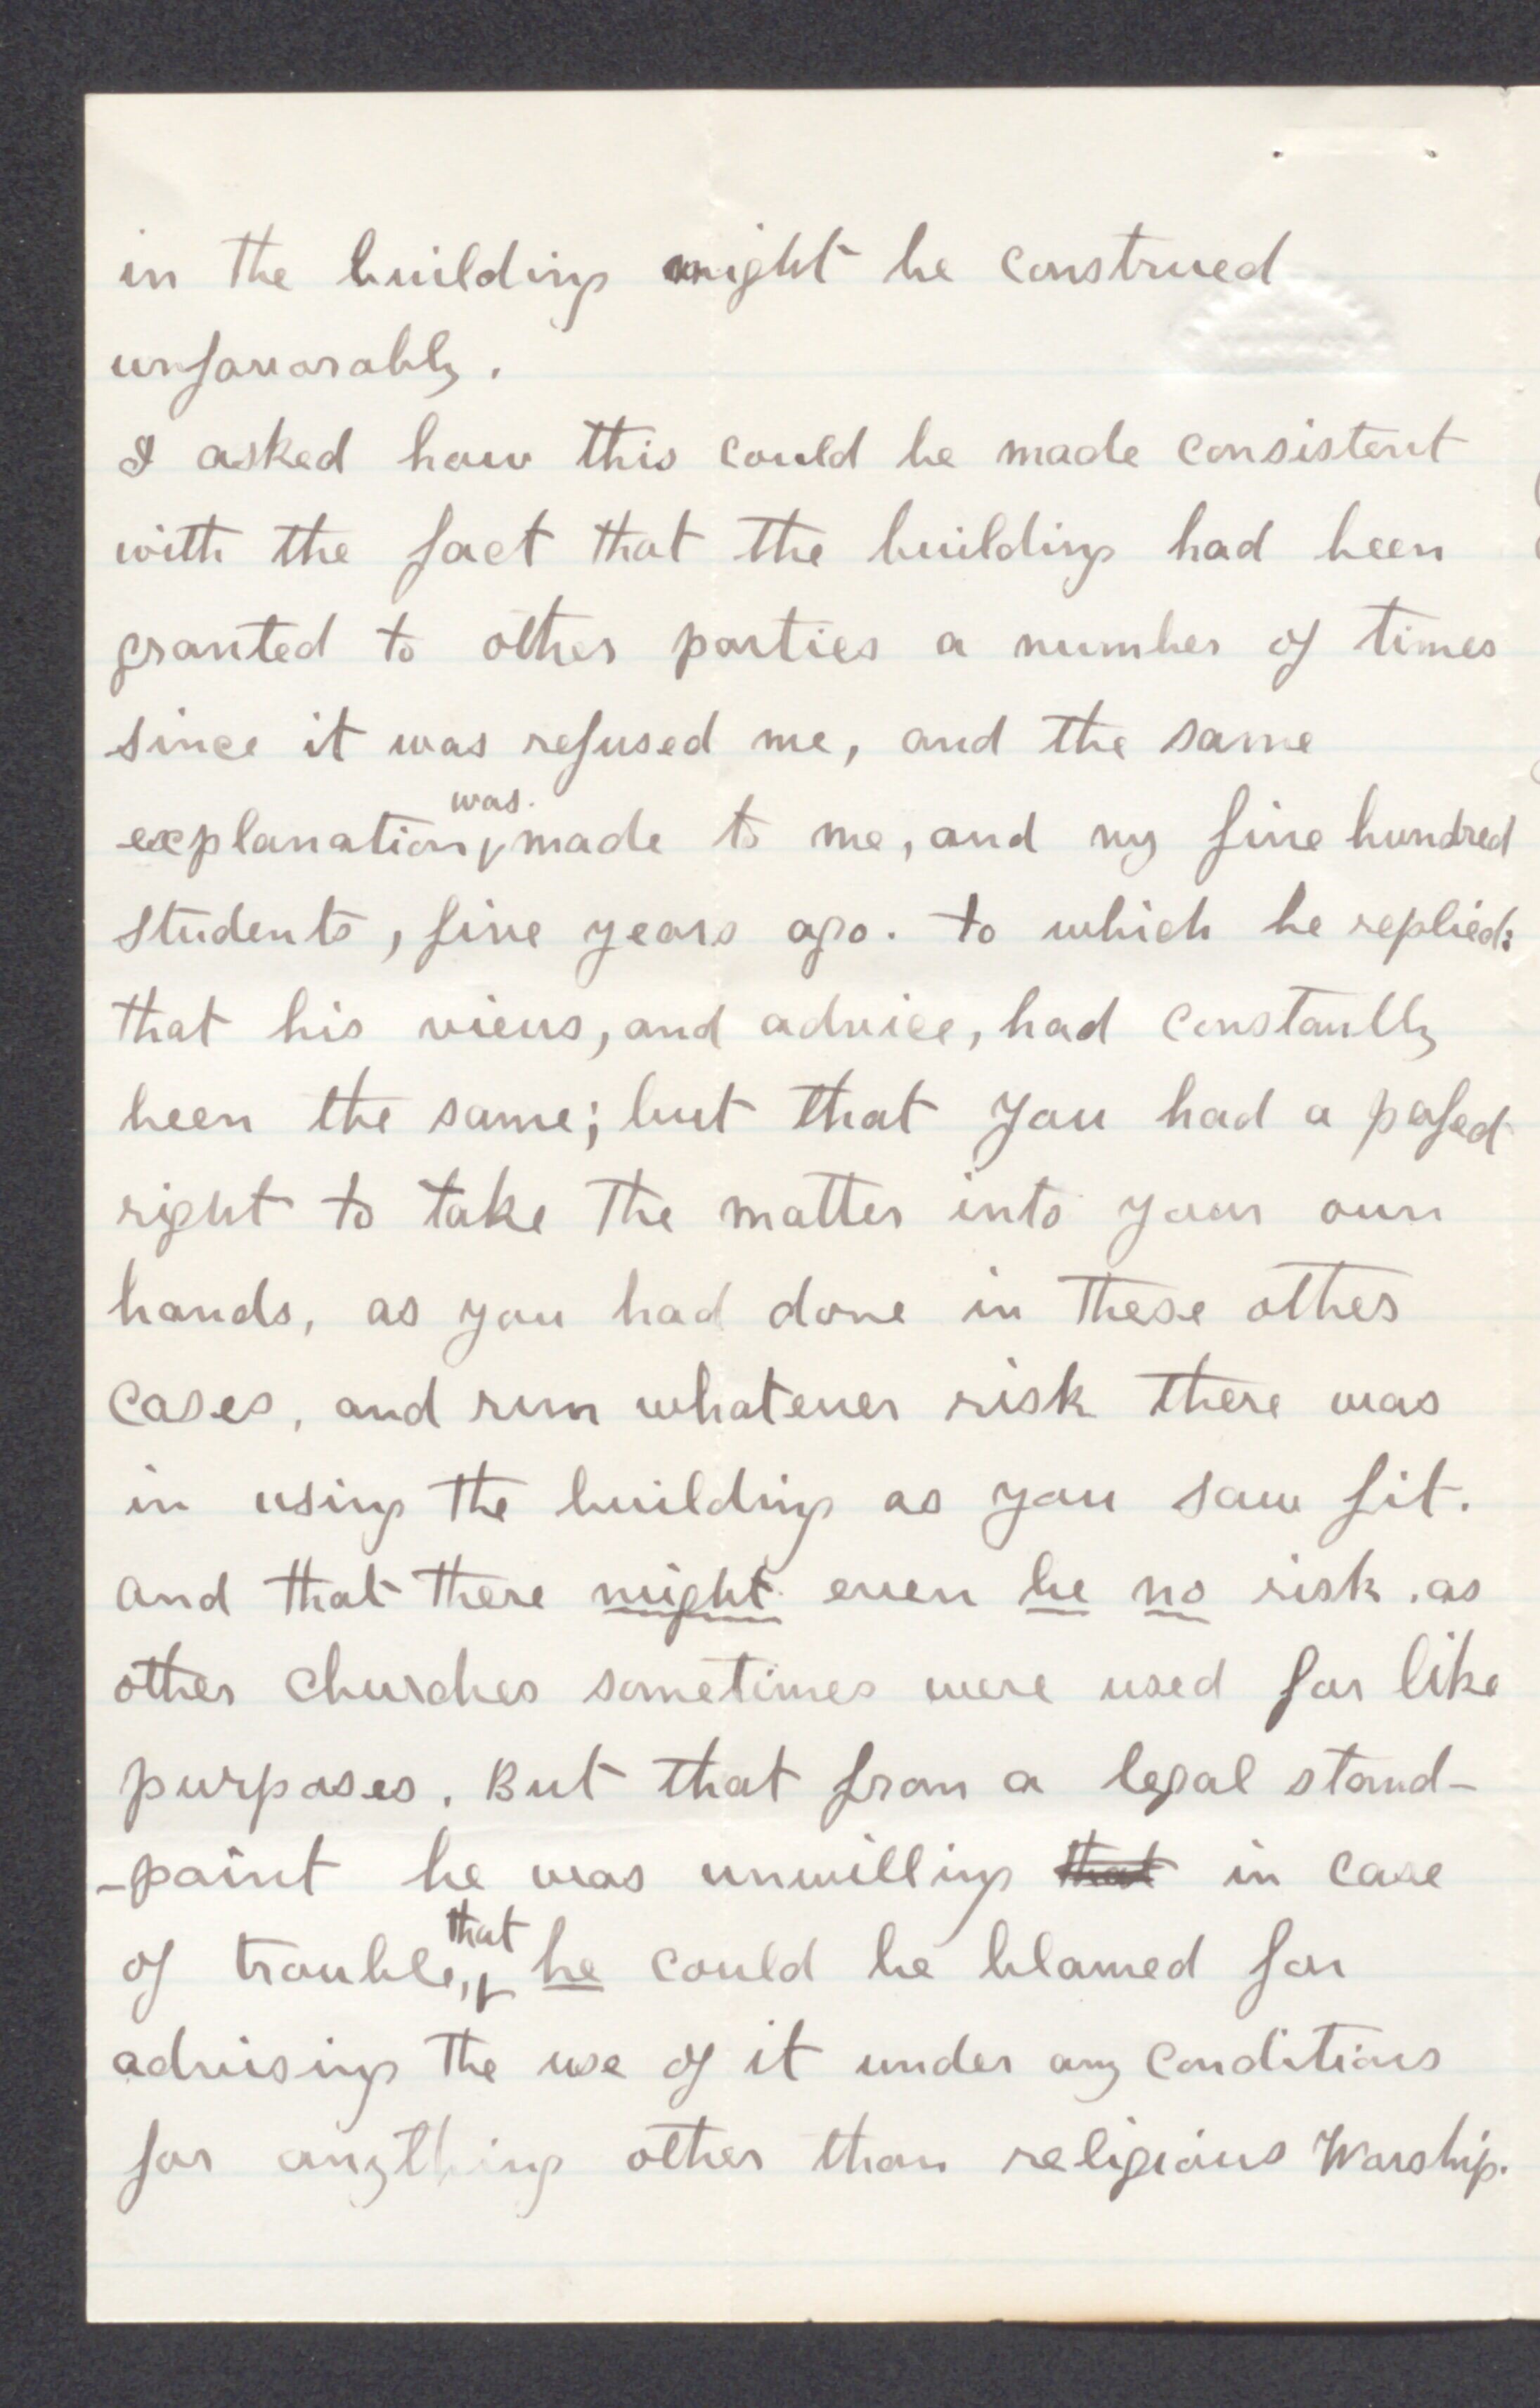 in the building might be construed
unfavorably.
I asked how this could be made consistent
with the fact that the building had been
granted to other parties a number of times
since it was refused me, and the same
explanation was. made to me, and my five hundred
students, five years ago. to which he replied:
that his views, and advice, had constantly
been the same; but that you had a perfect
right to take the matter into your own
hands, as you had done in these other
cases, and run whatever risk there was
in using the building as you saw fit.
and that there might even be no risk. as
other churches sometimes were used for like
purposes. But that from a legal stand-
-point he was unwilling that in case
of trouble, that he could be blamed for
advising the use of it under any conditions
for anything other than religious Worship.